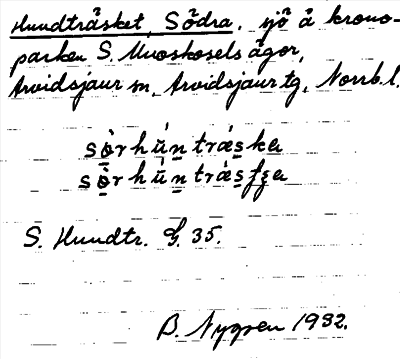 Hundträsket, Södra, sjö å krono-
parken S. Muoskosels ägor,
Arvidsjaur sn, Arvidsjaur tg, Norrb. l.
sòrhúntráska
S. Hundtr. G. 35.
B. Nygren 1932.